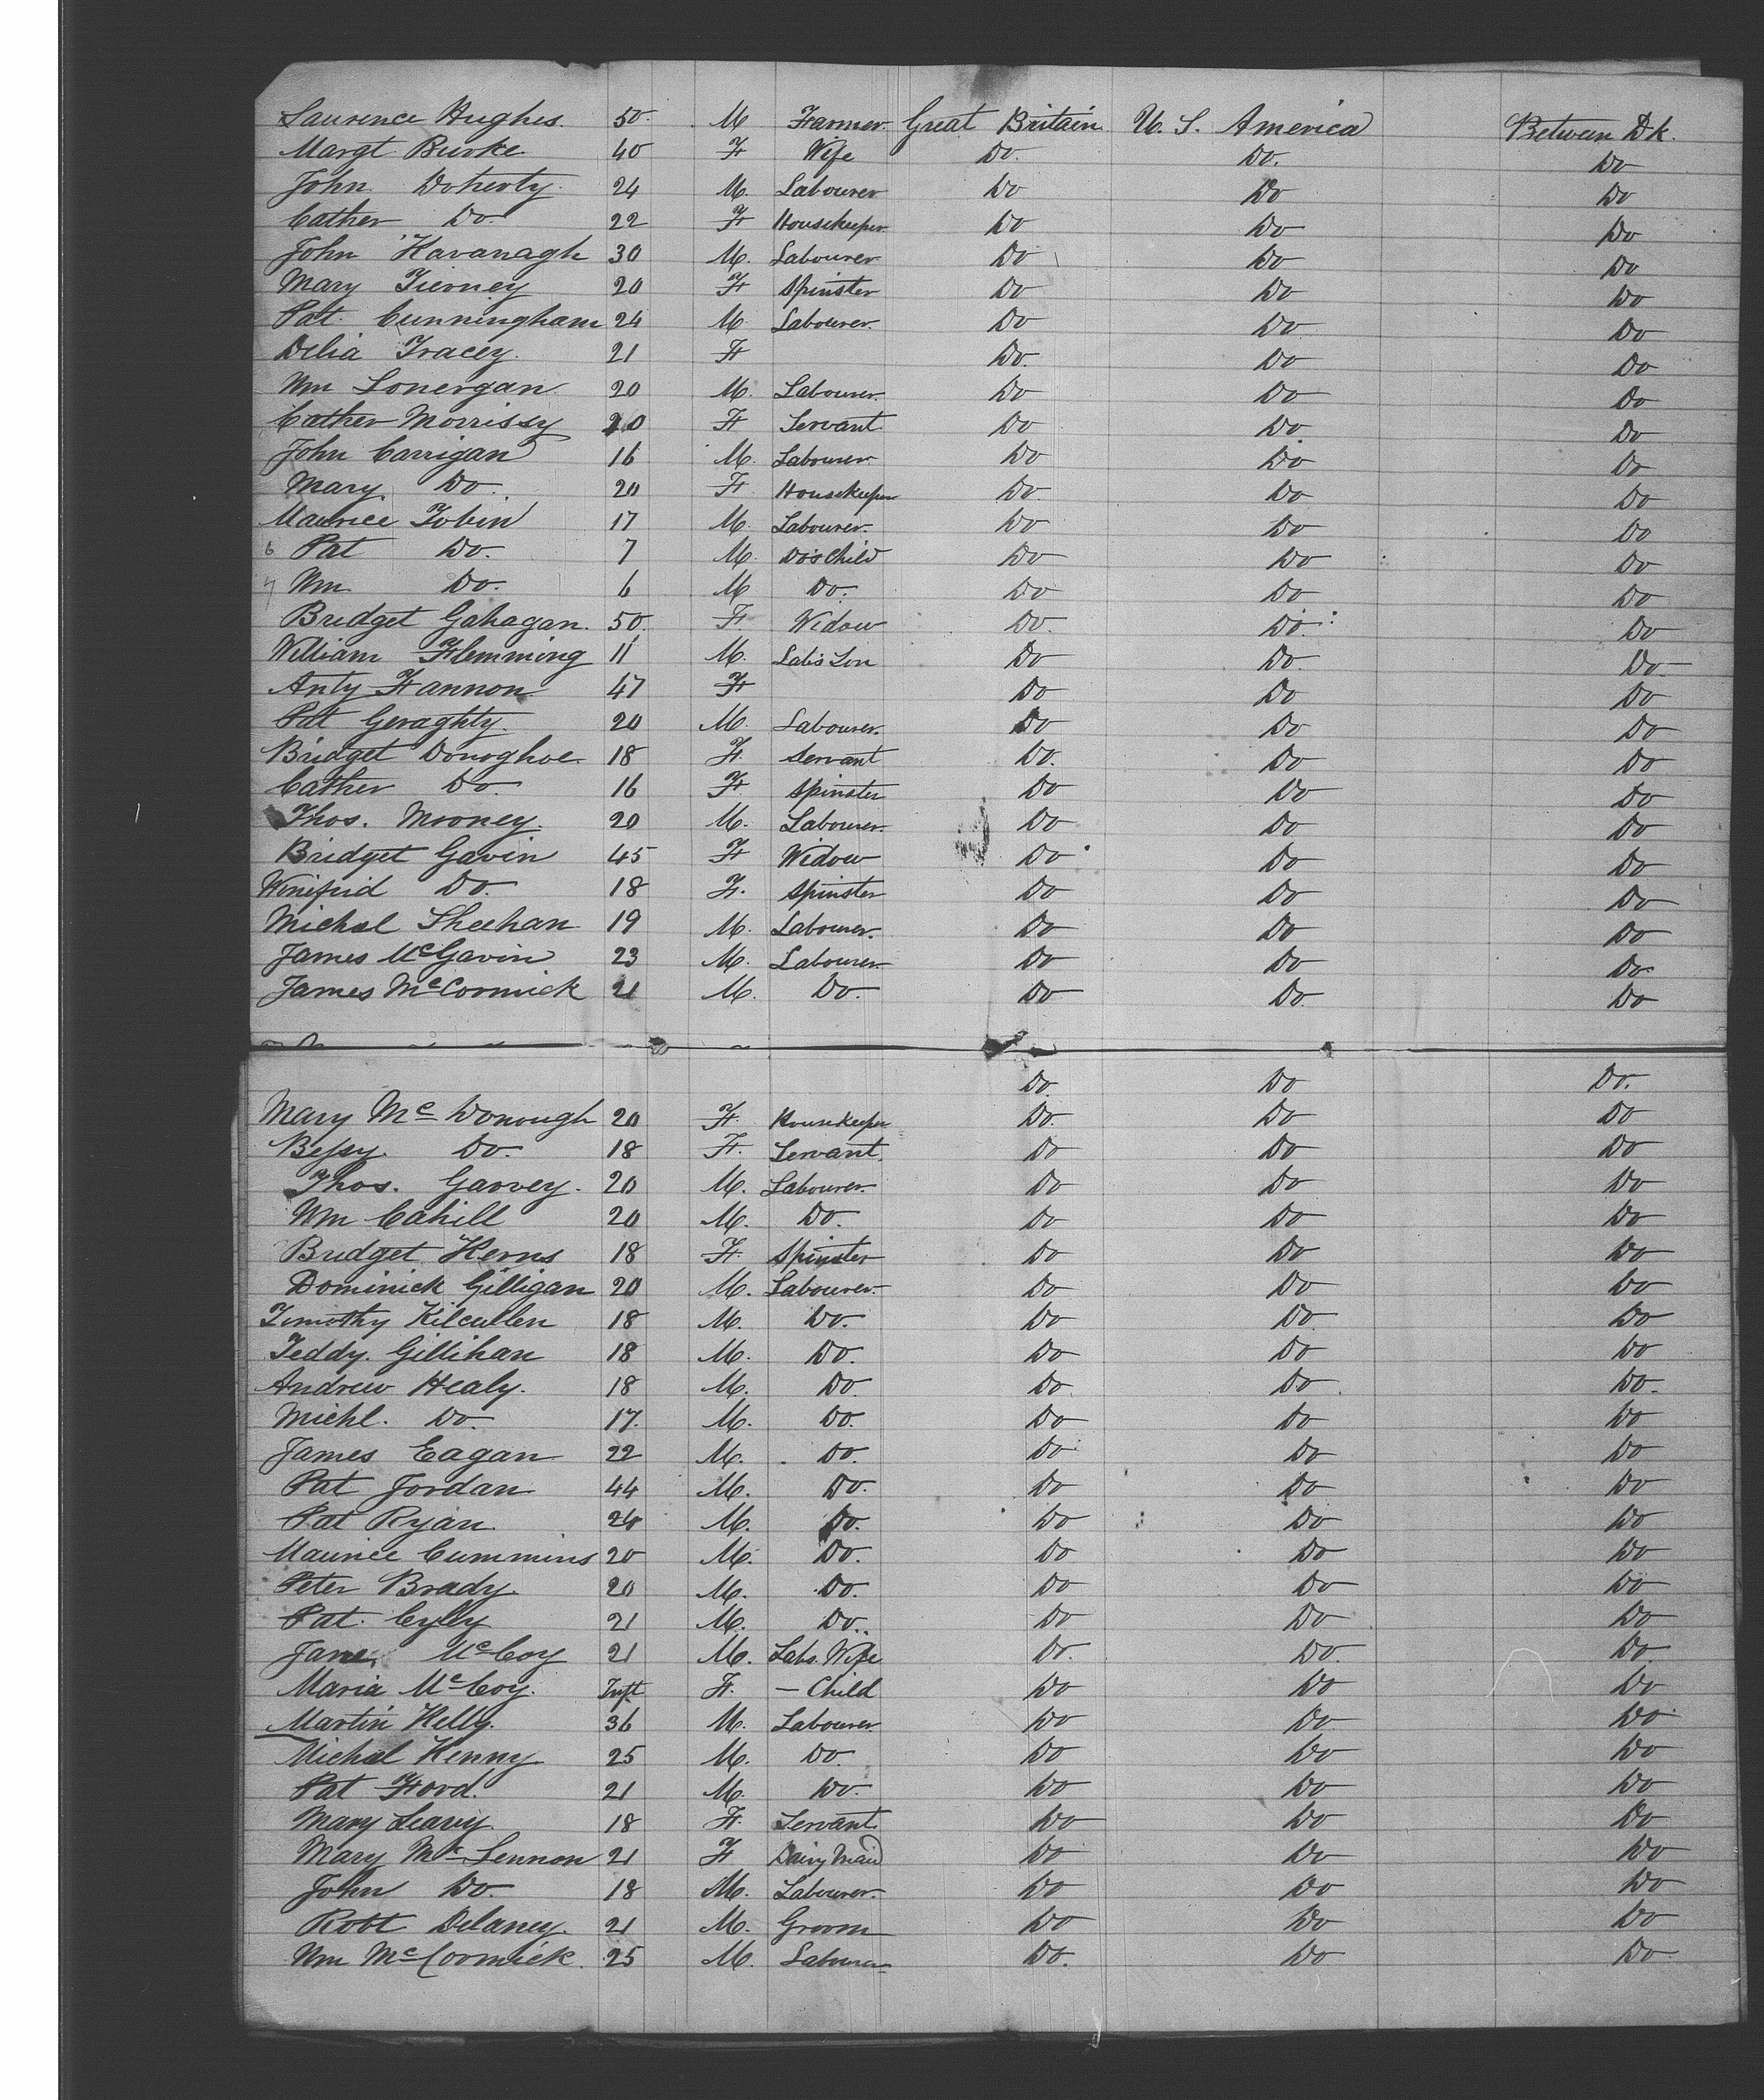 Laurence Hughes. 50. M Farmer. Great Britain. U. S. America Between Dk.
Margt Burke 40 F Wife Do. Do. Do
John Doherty. 24 M. Labourer Do Do Do
Cather Do. 22 F Housekeeper Do Do Do
John Kavanagh 30 M. Labourer Do Do Do
Mary Tierney 20 F Spinster Do Do Do
Pat. Cunningham 24 M Labourer. Do Do Do
Delia Tracey. 21 F Do. Do Do
Wm Lonergan 20 M. Labourer. Do Do Do
Cather Morrissy 20 F Servant Do Do. Do
John Carrigan 16 M. Labourer. Do Do Do
Mary Do. 20 F Housekeeper Do. Do Do
Maurice Tobin 17 M. Labourer. Do Do Do
6 Pat Do. 7 M. Do's Child Do Do Do
7 Wm Do. 6 M Do. Do Do Do
Bridget Gahagan. 50. F Widow Do. Do. Do
William Flemming 11 M. Lab's Son Do Do. Do.
Anty Fannon 47 F Do Do Do
Pat Geraghty. 20 M. Labourer. Do Do Do
Bridget Donoghoe. 18 F. Servant Do. Do Do
Cather Do. 16 F. Spinster Do Do Do
Thos. Mooney. 20 M. Labourer. Do Do Do
Bridget Gavin 45 F Widow Do Do Do
Winifrid Do. 18 F. Spinster Do Do Do
Michal Sheehan 19 M. Labourer. Do Do Do
James McGavin 23 M. Labourer. Do Do Do.
James McCormick 21 M. Do. Do Do. Do
Do. Do Do.
Mary Mc Donough 20 F. Housekeeper Do. Do Do
Bessy. Do. 18 F. Servant. Do Do Do
Thos. Garvey. 20 M. Labourer. Do Do Do
Wm Cahill 20 M. Do. Do Do Do
Bridget Kerns 18 F. Spinster Do Do Do
Dominick Gilligan 20 M. Labourer. Do Do Do
Timothy Kilcullen 18 M. Do. Do Do. Do
Teddy. Gillihan 18 M. Do. Do Do Do
Andrew Healy. 18 M. Do. Do Do. Do.
Michl. Do. 17. M. Do. Do Do Do
James Eagan 22 M. Do. Do Do Do
Pat Jordan 44 M. Do. Do Do Do
Pat Ryan 24 M. Do. Do Do Do
Maurice Cummins 20 M. Do. Do Do Do
Peter Brady. 20 M. Do. Do Do Do
Pat. 21 M. Do. Do Do Do
Jane McCoy 21 M. Labs. Wife Do. Do. Do.
Maria McCoy. Inft F. - Child Do Do Do
Martin Kelly. 36 M. Labourer. Do Do Do
Michal Kenny. 25 M. Do. Do Do Do
Pat Ford. 21 M. Do. Do Do Do
Mary Leary. 18 F. Servant. Do Do Do
Mary Mc Lennon 21 F Dairy Maid Do Do Do
John Do. 18 M. Labourer. Do Do Do
Robt Delaney. 21 M. Groom Do Do Do
Wm McCormick. 25 M. Labourer Do. Do Do